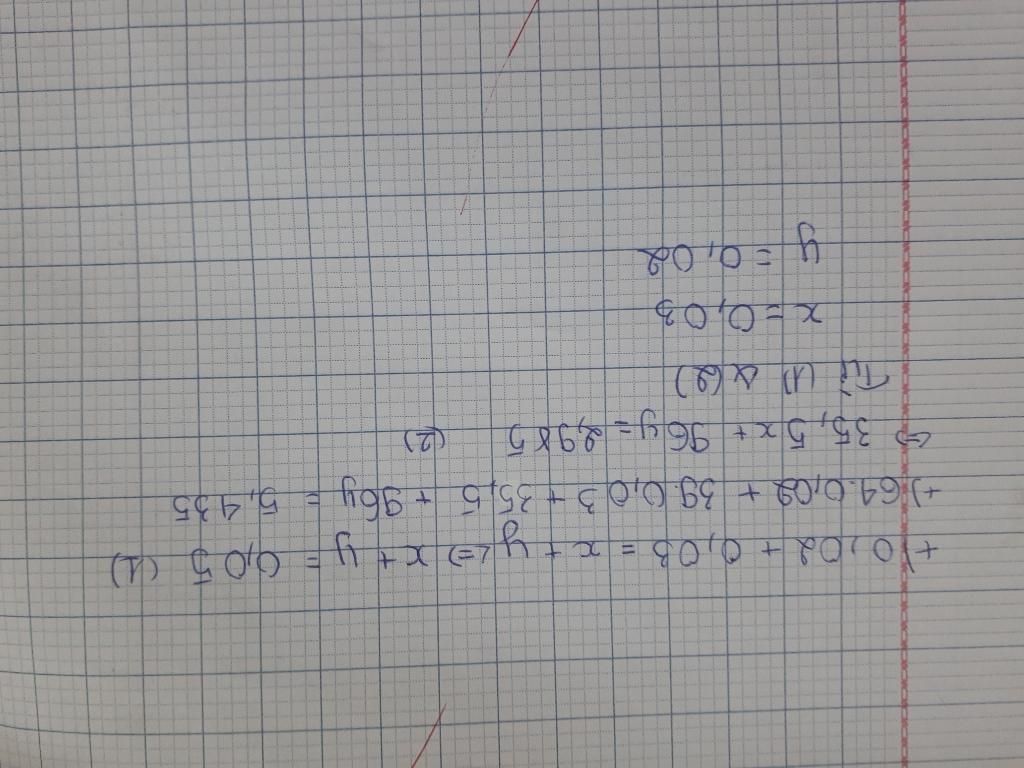 +) 0,02 + 0,03 = x + y <=> x + y = 0,05 (1)
+) 64.0,02 + 39.0,03 + 35,5 + 96y = 5,435
<=> 35,5x + 96y = 2,985 (2)
Từ (1) & (2)
x = 0,03
y = 0,02